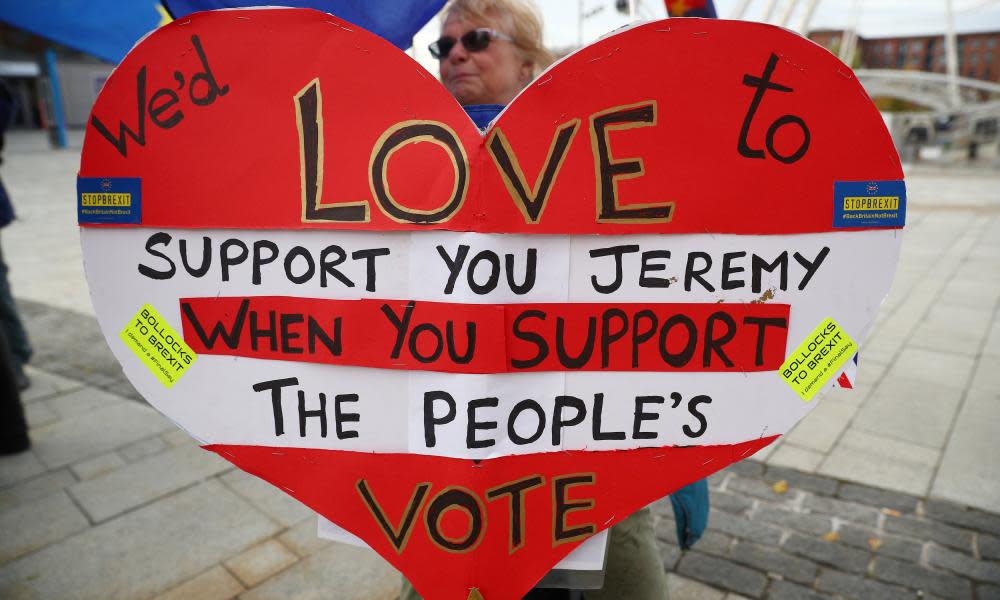 We'd LOVE to
STOPBREXIT
#BackBritainNotBrexit
STOPBREXIT
#BackBritainNotBrexit
SUPPORT YOU JEREMY
WHEN YOU SUPPORT
BOLLOCKS
TO BREXIT
I demand a #FinalSay
BOLLOCKS
TO BREXIT
I demand a #FinalSay
THE PEOPLE'S
VOTE